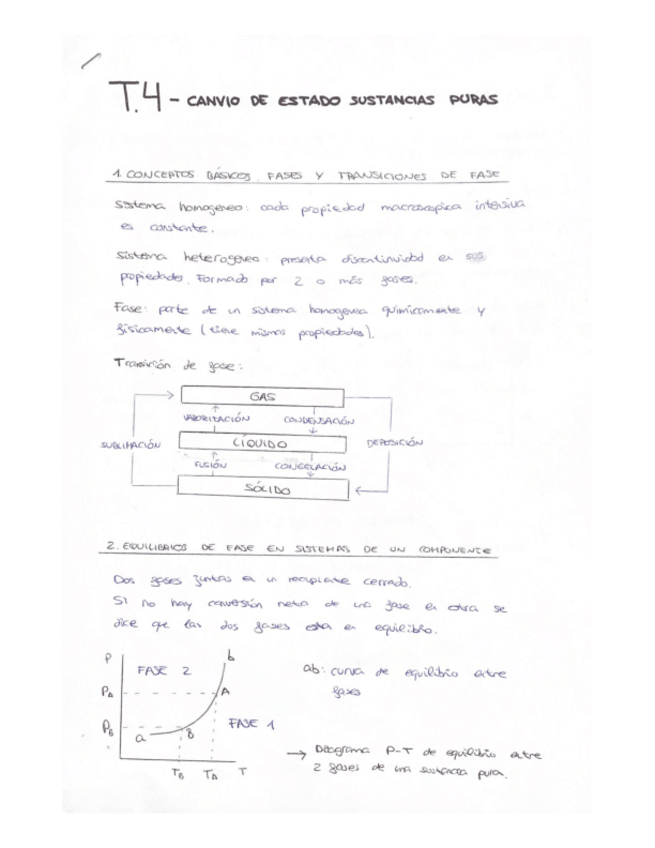 T.4 - CANVIO DE ESTADO SUSTANCIAS PURAS
1. CONCEPTOS BÁSICOS. FASES Y TRANSICIONES DE FASE
Sistema homogeneo: cada propiedad macroscopica intensiva
es constante.
Sistema heterogeneo: presenta discontinuidad en sus
propiedades. Formado por 2 o más fases.
Fase: parte de un sistema homogenea quimicamente y
fisicamente (tiene mismas propiedades).
Transición de fase:
GAS
VAPORIZACIÓN CONDENSACIÓN
SUBLIMACIÓN LÍQUIDO DEPOSICIÓN
FUSIÓN CONGELACIÓN
SÓLIDO
2. EQUILIBRIOS DE FASE EN SISTEMAS DE UN COMPONENTE
Dos fases juntas en un recipiente cerrado.
Si no hay conversión neta de una fase en otra se
dice que las dos fases esta en equilibrio.
P b
FASE 2 ab: curva de equilibrio entre
PA A fases
PB a B FASE 1
→ Diagrama P-T de equilibrio entre
TB TA T 2 fases de una sustancia pura.